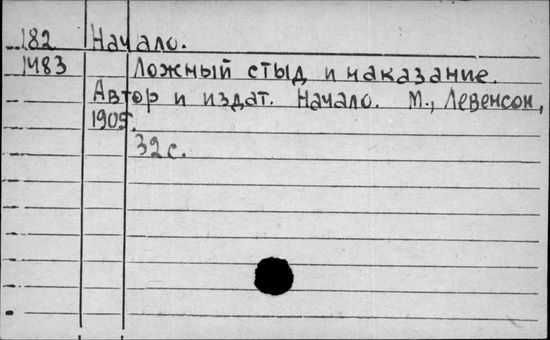 182 Начало.
1483 Ложный стыд и наказание.
Автор и издат. Начало. М., Левенсон,
1905.
32 с.